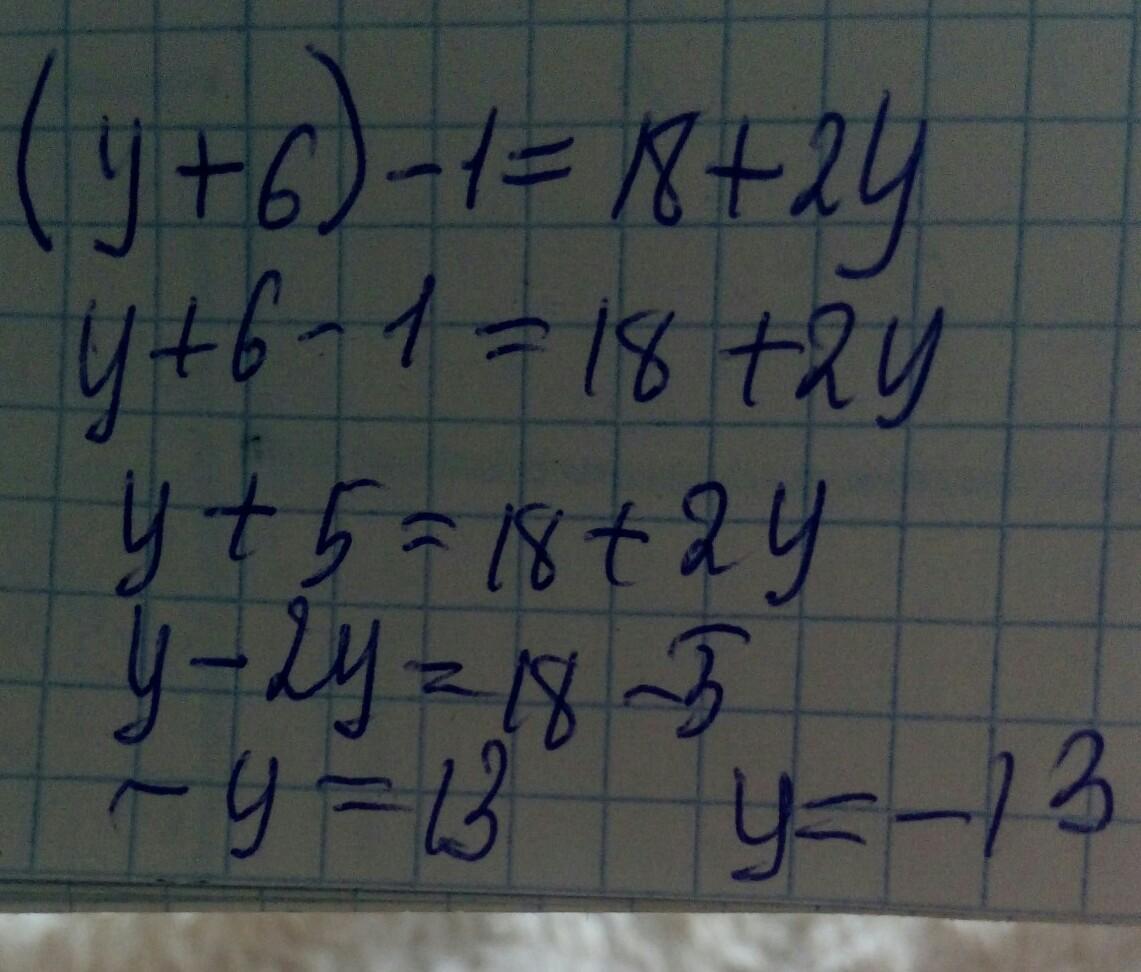 (y+6)-1=18+2y
y+6-1=18+2y
y+5=18+2y
y-2y=18-5
-y=13 y=-13